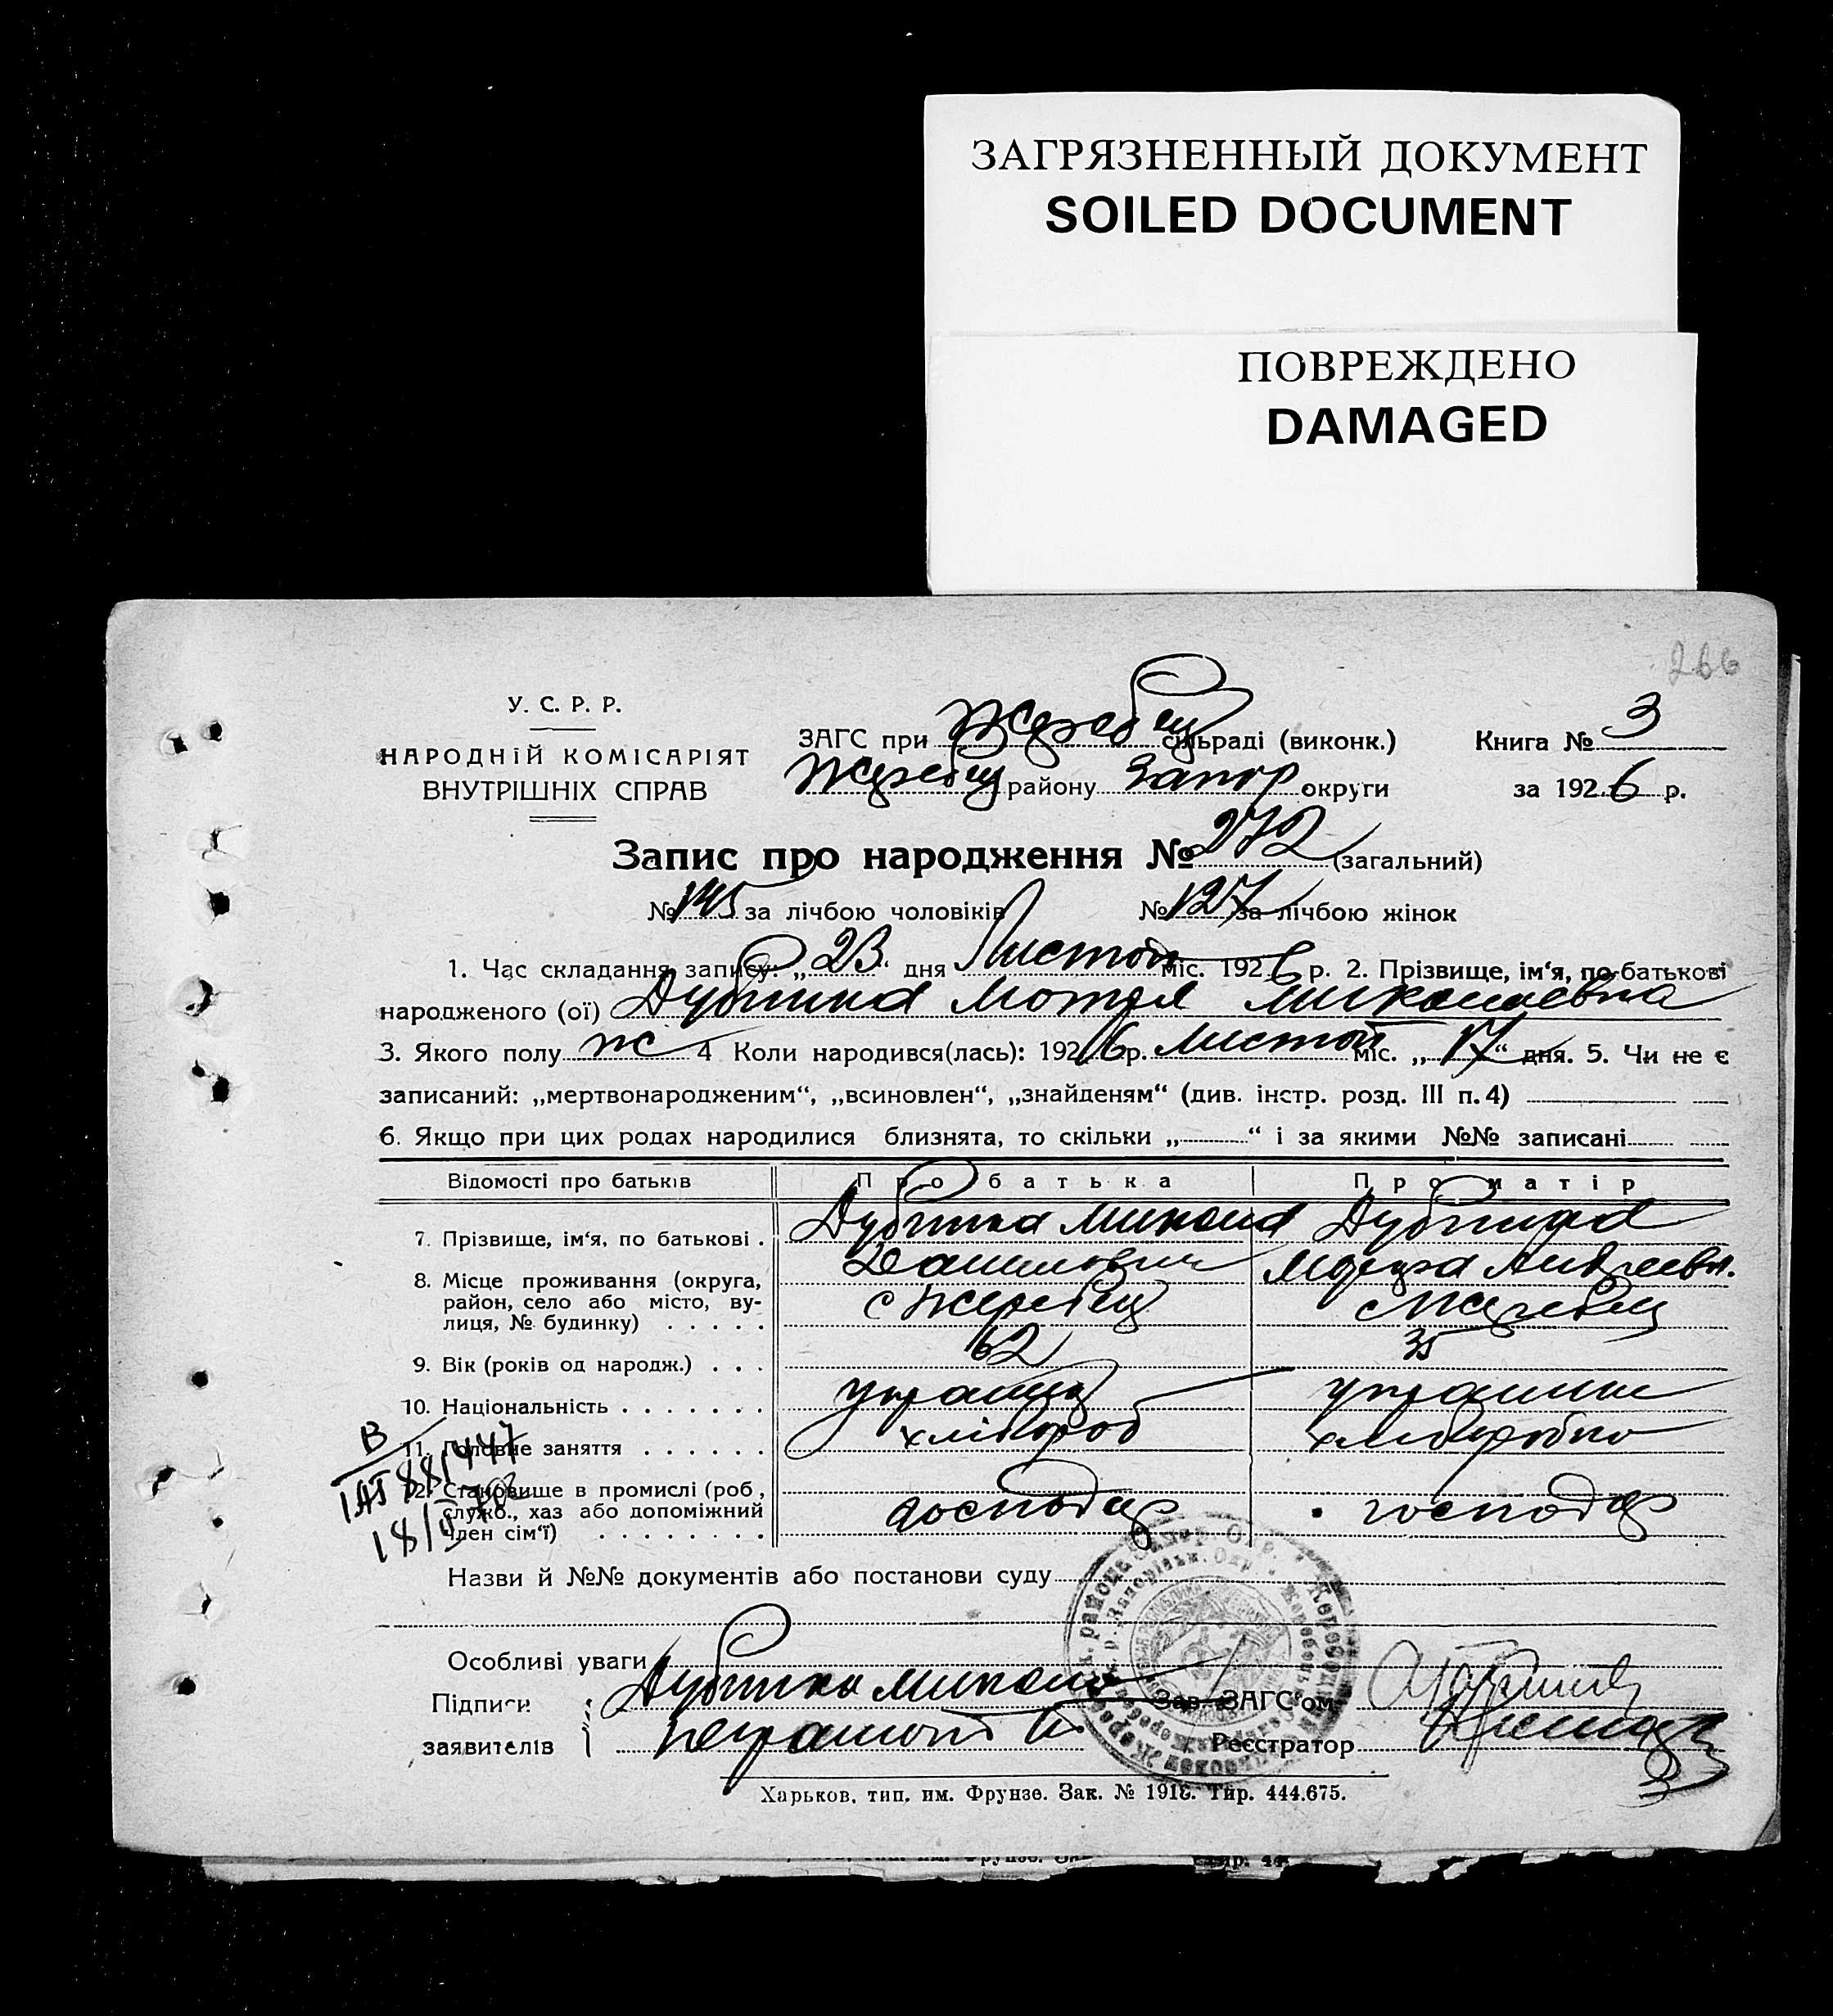 ЗАГРЯЗНЕННЫЙ ДОКУМЕНТ
SOILED DOCUMENT
ПОВРЕЖДЕНО
DAMAGED
266
У. С. Р. Р.
НАРОДНІЙ КОМІСАРІЯТ
ВНУТРІШНІХ СПРАВ
ЗАГС при Жеребец сільраді (виконк.) Книга № 3
Жеребец району Запор округи за 1926 р.
Запис про народження № 272 (загальний)
№ 145 за лічбою чоловіків № 127 за лічбою жінок
1. Час складання запису: „23“ дня Листоп міс. 1926 р. 2. Прізвище, ім‘я, по-батькові
народженого (ої) Дубинина Мотря Миколаевна
3. Якого полу ж 4 Коли народився(лась): 1926 р. Листоп міс. „17“ дня. 5. Чи не є
записаний: „мертвонародженим“, „всиновлен“, „знайденям“ (див. інстр. розд. III п. 4)
6. Якщо при цих родах народилися близнята, то скільки „ “ і за якими №№ записані
Відомості про батьків Про батька Про матір
7. Прізвище, ім‘я, по батькові . Дубинка Микола Данилович
8. Місце проживання (округа, район, село або місто, вулиця, № будинку) . . . . . с Жеребец с Жеребец
9. Вік (років од народж.) . . . 62 35
10. Національність . . . . . . . украинец украинк
11. Головне заняття . . . . . . хлібороб
12. Становище в промислі (роб, служб., хаз або допоміжний член сім‘ї) . . . . . . . . господар господар
В
18/II
Назви й №№ документів або постанови суду
Особливі уваги
Підписи заявителів Дубинка Микола
Зав. ЗАГС‘ом
Реєстратор
Харьков, тип. им. Фрунзе. Зак. № 1918. Тир. 444.675.